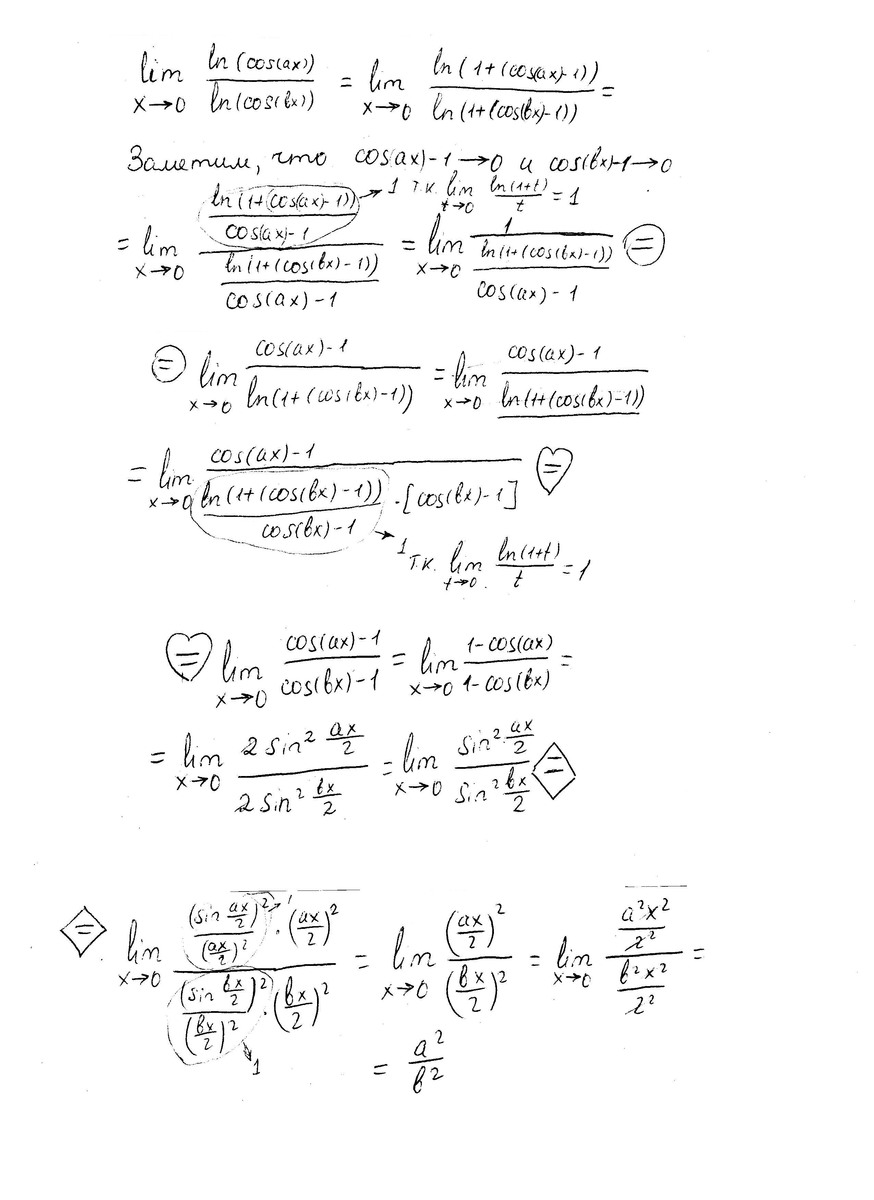 lim x→0 ln(cos(ax)) / ln(cos(bx)) = lim x→0 ln(1+(cos(ax)-1)) / ln(1+(cos(bx)-1)) =
Заметим, что cos(ax)-1→0 и cos(bx)-1→0
= lim x→0 (ln(1+(cos(ax)-1)) / (cos(ax)-1)) / (ln(1+(cos(bx)-1)) / (cos(ax)-1)) → 1 т.к. lim t→0 ln(1+t)/t = 1 = lim x→0 1 / (ln(1+(cos(bx)-1)) / (cos(ax)-1)) =
= lim x→0 (cos(ax)-1) / ln(1+(cos(bx)-1)) = lim x→0 (cos(ax)-1) / ln(1+(cos(bx)-1))
= lim x→0 (cos(ax)-1) / (ln(1+(cos(bx)-1)) / (cos(bx)-1) · [cos(bx)-1]) =
→ 1 т.к. lim t→0 ln(1+t)/t = 1
= lim x→0 (cos(ax)-1) / (cos(bx)-1) = lim x→0 (1-cos(ax)) / (1-cos(bx)) =
= lim x→0 2 sin² ax/2 / 2 sin² bx/2 = lim x→0 sin² ax/2 / sin² bx/2 =
= lim x→0 ((sin ax/2)² / (ax/2)² → 1 · (ax/2)²) / ((sin bx/2)² / (bx/2)² → 1 · (bx/2)²) = lim x→0 (ax/2)² / (bx/2)² = lim x→0 (a²x²/2²) / (b²x²/2²) =
= a²/b²